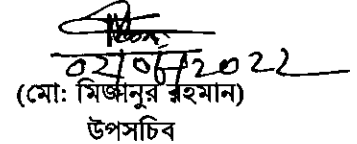 02/06/2022
(মো: মিজানুর রহমান)
উপসচিব